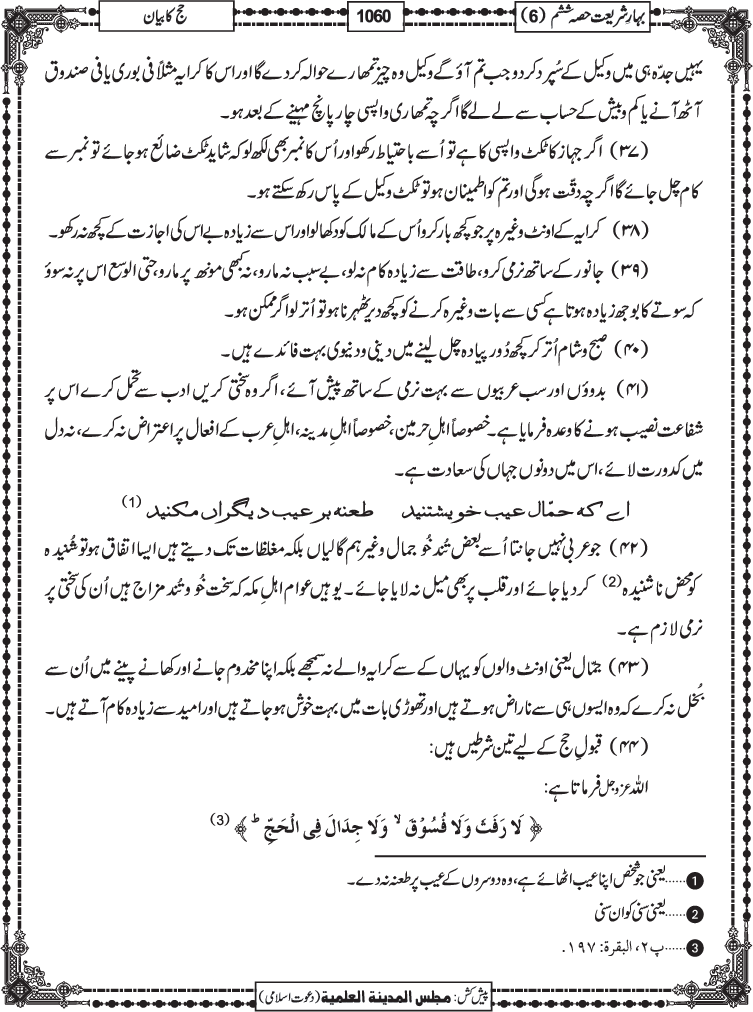 بہارِ شریعت حصہ ششم (6)
1060
حج کا بیان
یہیں جدّہ ہی میں وکیل کے سُپرد کردو جب تم آؤ گے وکیل وہ چیز تمھارے حوالہ کردے گا اور اس کا کرایہ مثلاً فی بوری یا فی صندوق
آٹھ آنے یا کم و بیش کے حساب سے لے لے گا اگرچہ تمھاری واپسی چار پانچ مہینے کے بعد ہو۔
(۳۷) اگر جہاز کا ٹکٹ واپسی کا ہے تو اُسے باحتیاط رکھو اور اُس کا نمبر بھی لکھ لو کہ شاید ٹکٹ ضائع ہو جائے تو نمبر سے
کام چل جائے گا اگرچہ دقّت ہوگی اور تم کو اطمینان ہو تو ٹکٹ وکیل کے پاس رکھ سکتے ہو۔
(۳۸) کرایہ کے اونٹ وغیرہ پر جو کچھ بار کرو اُس کے مالک کو دکھا لو اور اس سے زیادہ بے اس کی اجازت کے کچھ نہ رکھو۔
(۳۹) جانور کے ساتھ نرمی کرو، طاقت سے زیادہ کام نہ لو، بے سبب نہ مارو، نہ کبھی مونھ پر مارو، حتی الوسع اس پر نہ سوؤ
کہ سوتے کا بوجھ زیادہ ہوتا ہے کسی سے بات وغیرہ کرنے کو کچھ دیر ٹھہرنا ہو تو اُتر لو اگر ممکن ہو۔
(۴۰) صبح و شام اُتر کر کچھ دُور پیادہ چل لینے میں دینی و دنیوی بہت فائدے ہیں۔
(۴۱) بدوؤں اور سب عربیوں سے بہت نرمی کے ساتھ پیش آئے، اگر وہ سختی کریں ادب سے تحمل کرے اس پر
شفاعت نصیب ہونے کا وعدہ فرمایا ہے۔ خصوصاً اہلِ حرمین، خصوصاً اہلِ مدینہ، اہلِ عرب کے افعال پر اعتراض نہ کرے، نہ دل
میں کدورت لائے، اس میں دونوں جہاں کی سعادت ہے۔
اے کہ حمّال عیب خویشتنید    طعنہ بر عیب دیگراں مکنید (1)
(۴۲) جو عربی نہیں جانتا اُسے بعض تُند خُو جمال وغیرہم گالیاں بلکہ مغلظات تک دیتے ہیں ایسا اتفاق ہو تو شُنیدہ
کو محض ناشنیدہ (2) کردیا جائے اور قلب پر بھی میل نہ لایا جائے۔ یوہیں عوام اہلِ مکہ کہ سخت خُو و تند مزاج ہیں اُن کی سختی پر
نرمی لازم ہے۔
(۴۳) جمّال یعنی اونٹ والوں کو یہاں کے سے کرایہ والے نہ سمجھے بلکہ اپنا مخدوم جانے اور کھانے پینے میں اُن سے
بُخل نہ کرے کہ وہ ایسوں ہی سے ناراض ہوتے ہیں اور تھوڑی بات میں بہت خوش ہو جاتے ہیں اور امید سے زیادہ کام آتے ہیں۔
(۴۴) قبولِ حج کے لیے تین شرطیں ہیں:
اللہ عزوجل فرماتا ہے:
﴿ لَا رَفَثَ وَلَا فُسُوْقَ ۙ وَلَا جِدَالَ فِی الْحَجِّ ؕ ﴾ (3)
1 ......یعنی جو شخص اپنا عیب اٹھائے ہے، وہ دوسروں کے عیب پر طعنہ نہ دے۔
2 ......یعنی سنی کو ان سنی
3 ......پ۲، البقرۃ: ۱۹۷.
پیش کش: مجلس المدینة العلمیة (دعوت اسلامی)